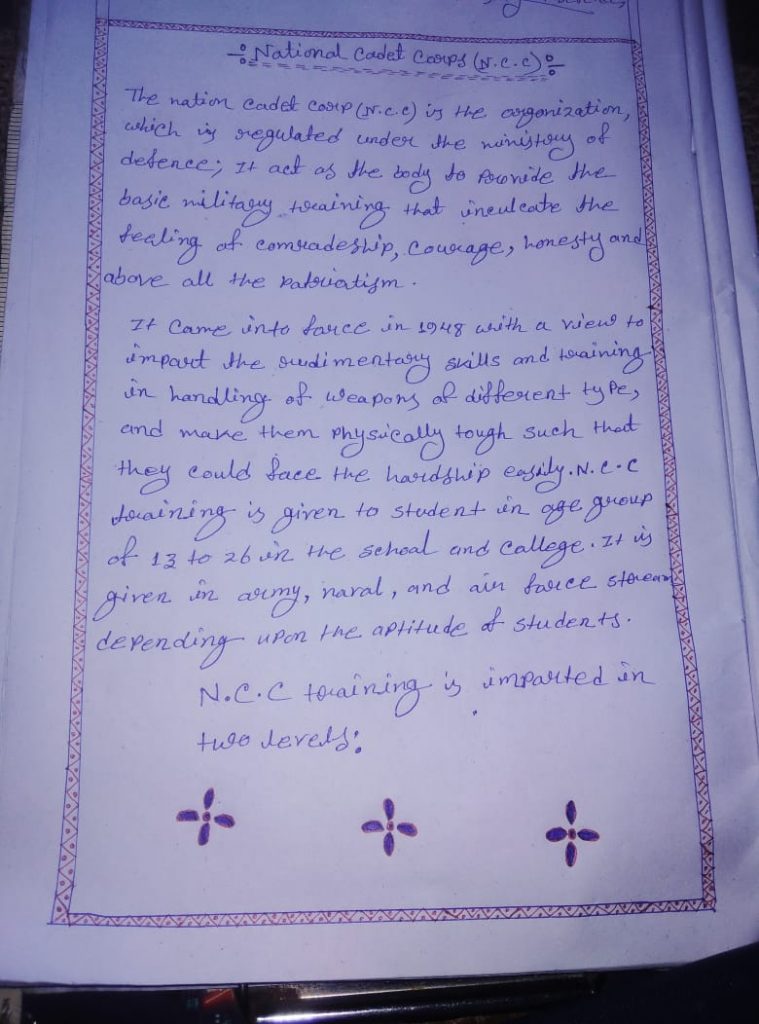 ÷ National Cadet Corps (N.C.C) ÷
The nation cadet corp (N.C.C) is the organization,
which is regulated under the ministry of
defence; It act as the body to provide the
basic military training that inculcate the
fealing of comradeship, courage, honesty and
above all the patriotism.
It came into farce in 1948 with a view to
impart the rudimentary skills and training
in handling of weapons of different type,
and make them physically tough such that
they could face the hardship easily. N.C.C
training is given to student in age group
of 13 to 26 in the school and college. It is
given in army, naval, and air farce stream
depending upon the aptitude of students.
N.C.C training is imparted in
two levels: